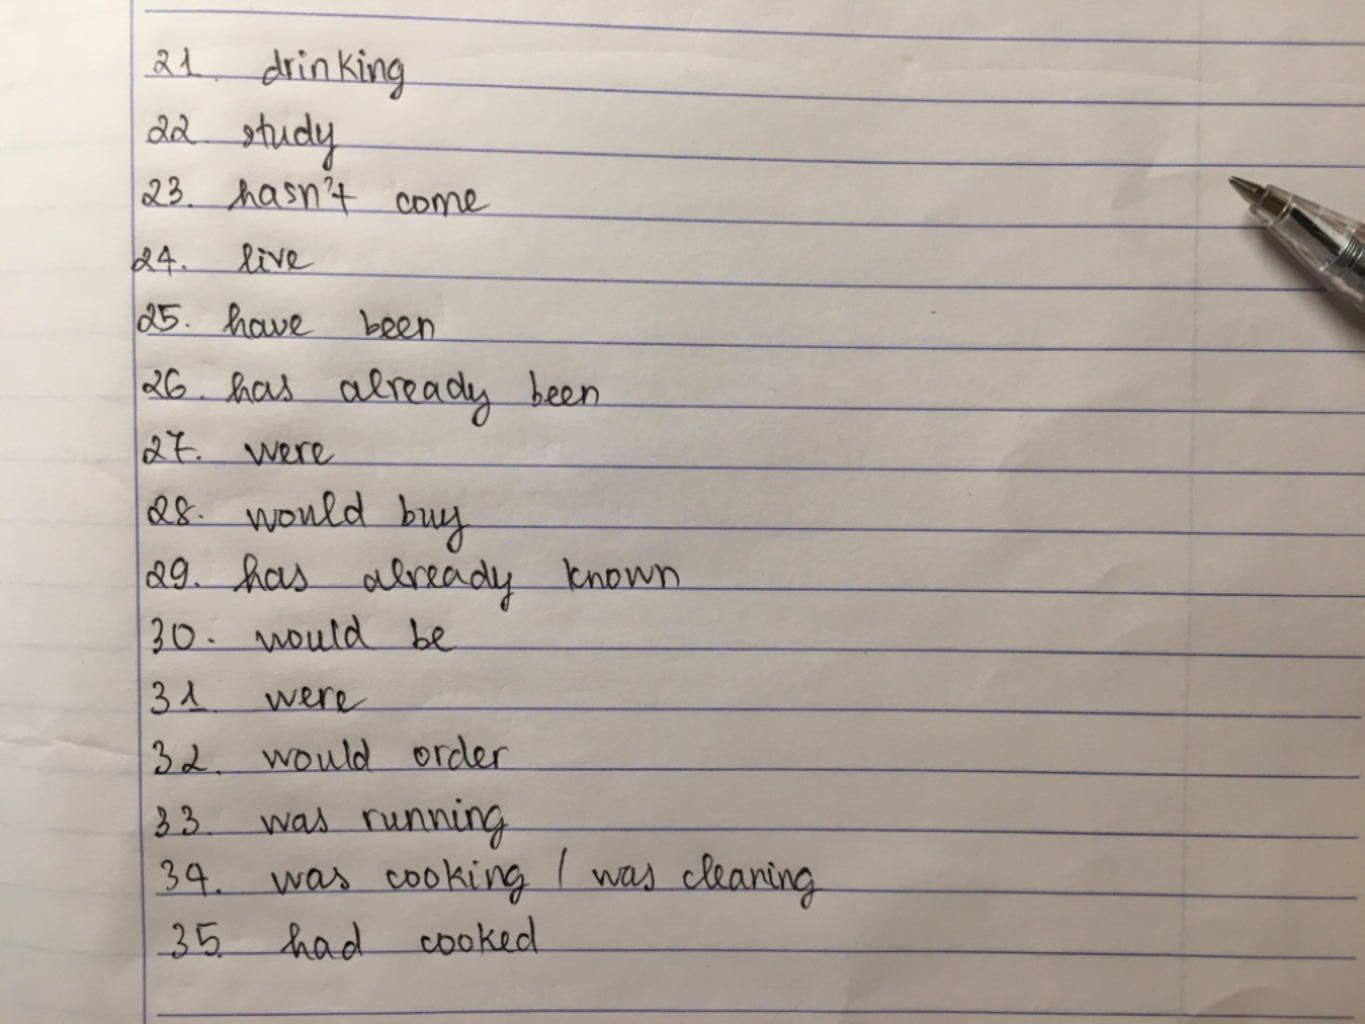 21. drinking
22. study
23. hasn't come
24. live
25. have been
26. has already been
27. were
28. would buy
29. has already known
30. would be
31. were
32. would order
33. was running
34. was cooking / was cleaning
35. had cooked